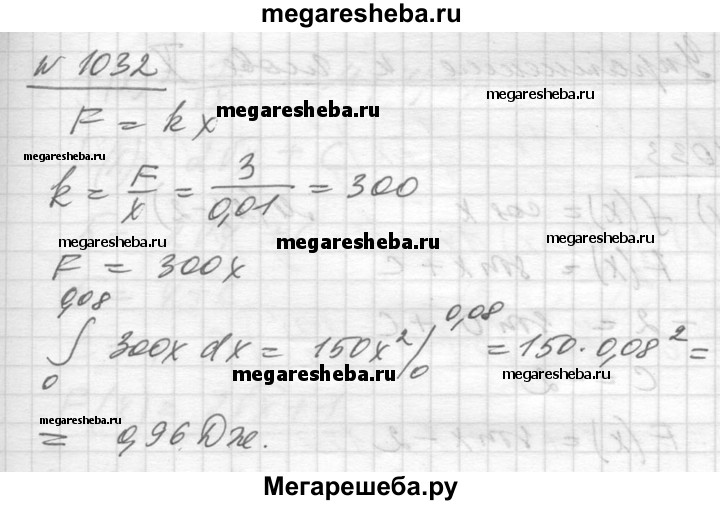 megaresheba.ru
N 1032
F = kx megaresheba.ru
megaresheba.ru
megaresheba.ru
k = F/x = 3/0,01 = 300
megaresheba.ru megaresheba.ru megaresheba.ru
F = 300x
∫₀^0,08 300x dx = 150x² |₀^0,08 = 150·0,08² =
megaresheba.ru megaresheba.ru
megaresheba.ru
= 0,96 Дж.
Мегарешеба.ру